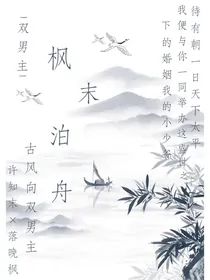 待有朝一日天下太平
我便与你一同举办这盛世
下的婚姻我的小少
枫末泊舟
「双男主」
古风向双男主
许知末×落晚枫